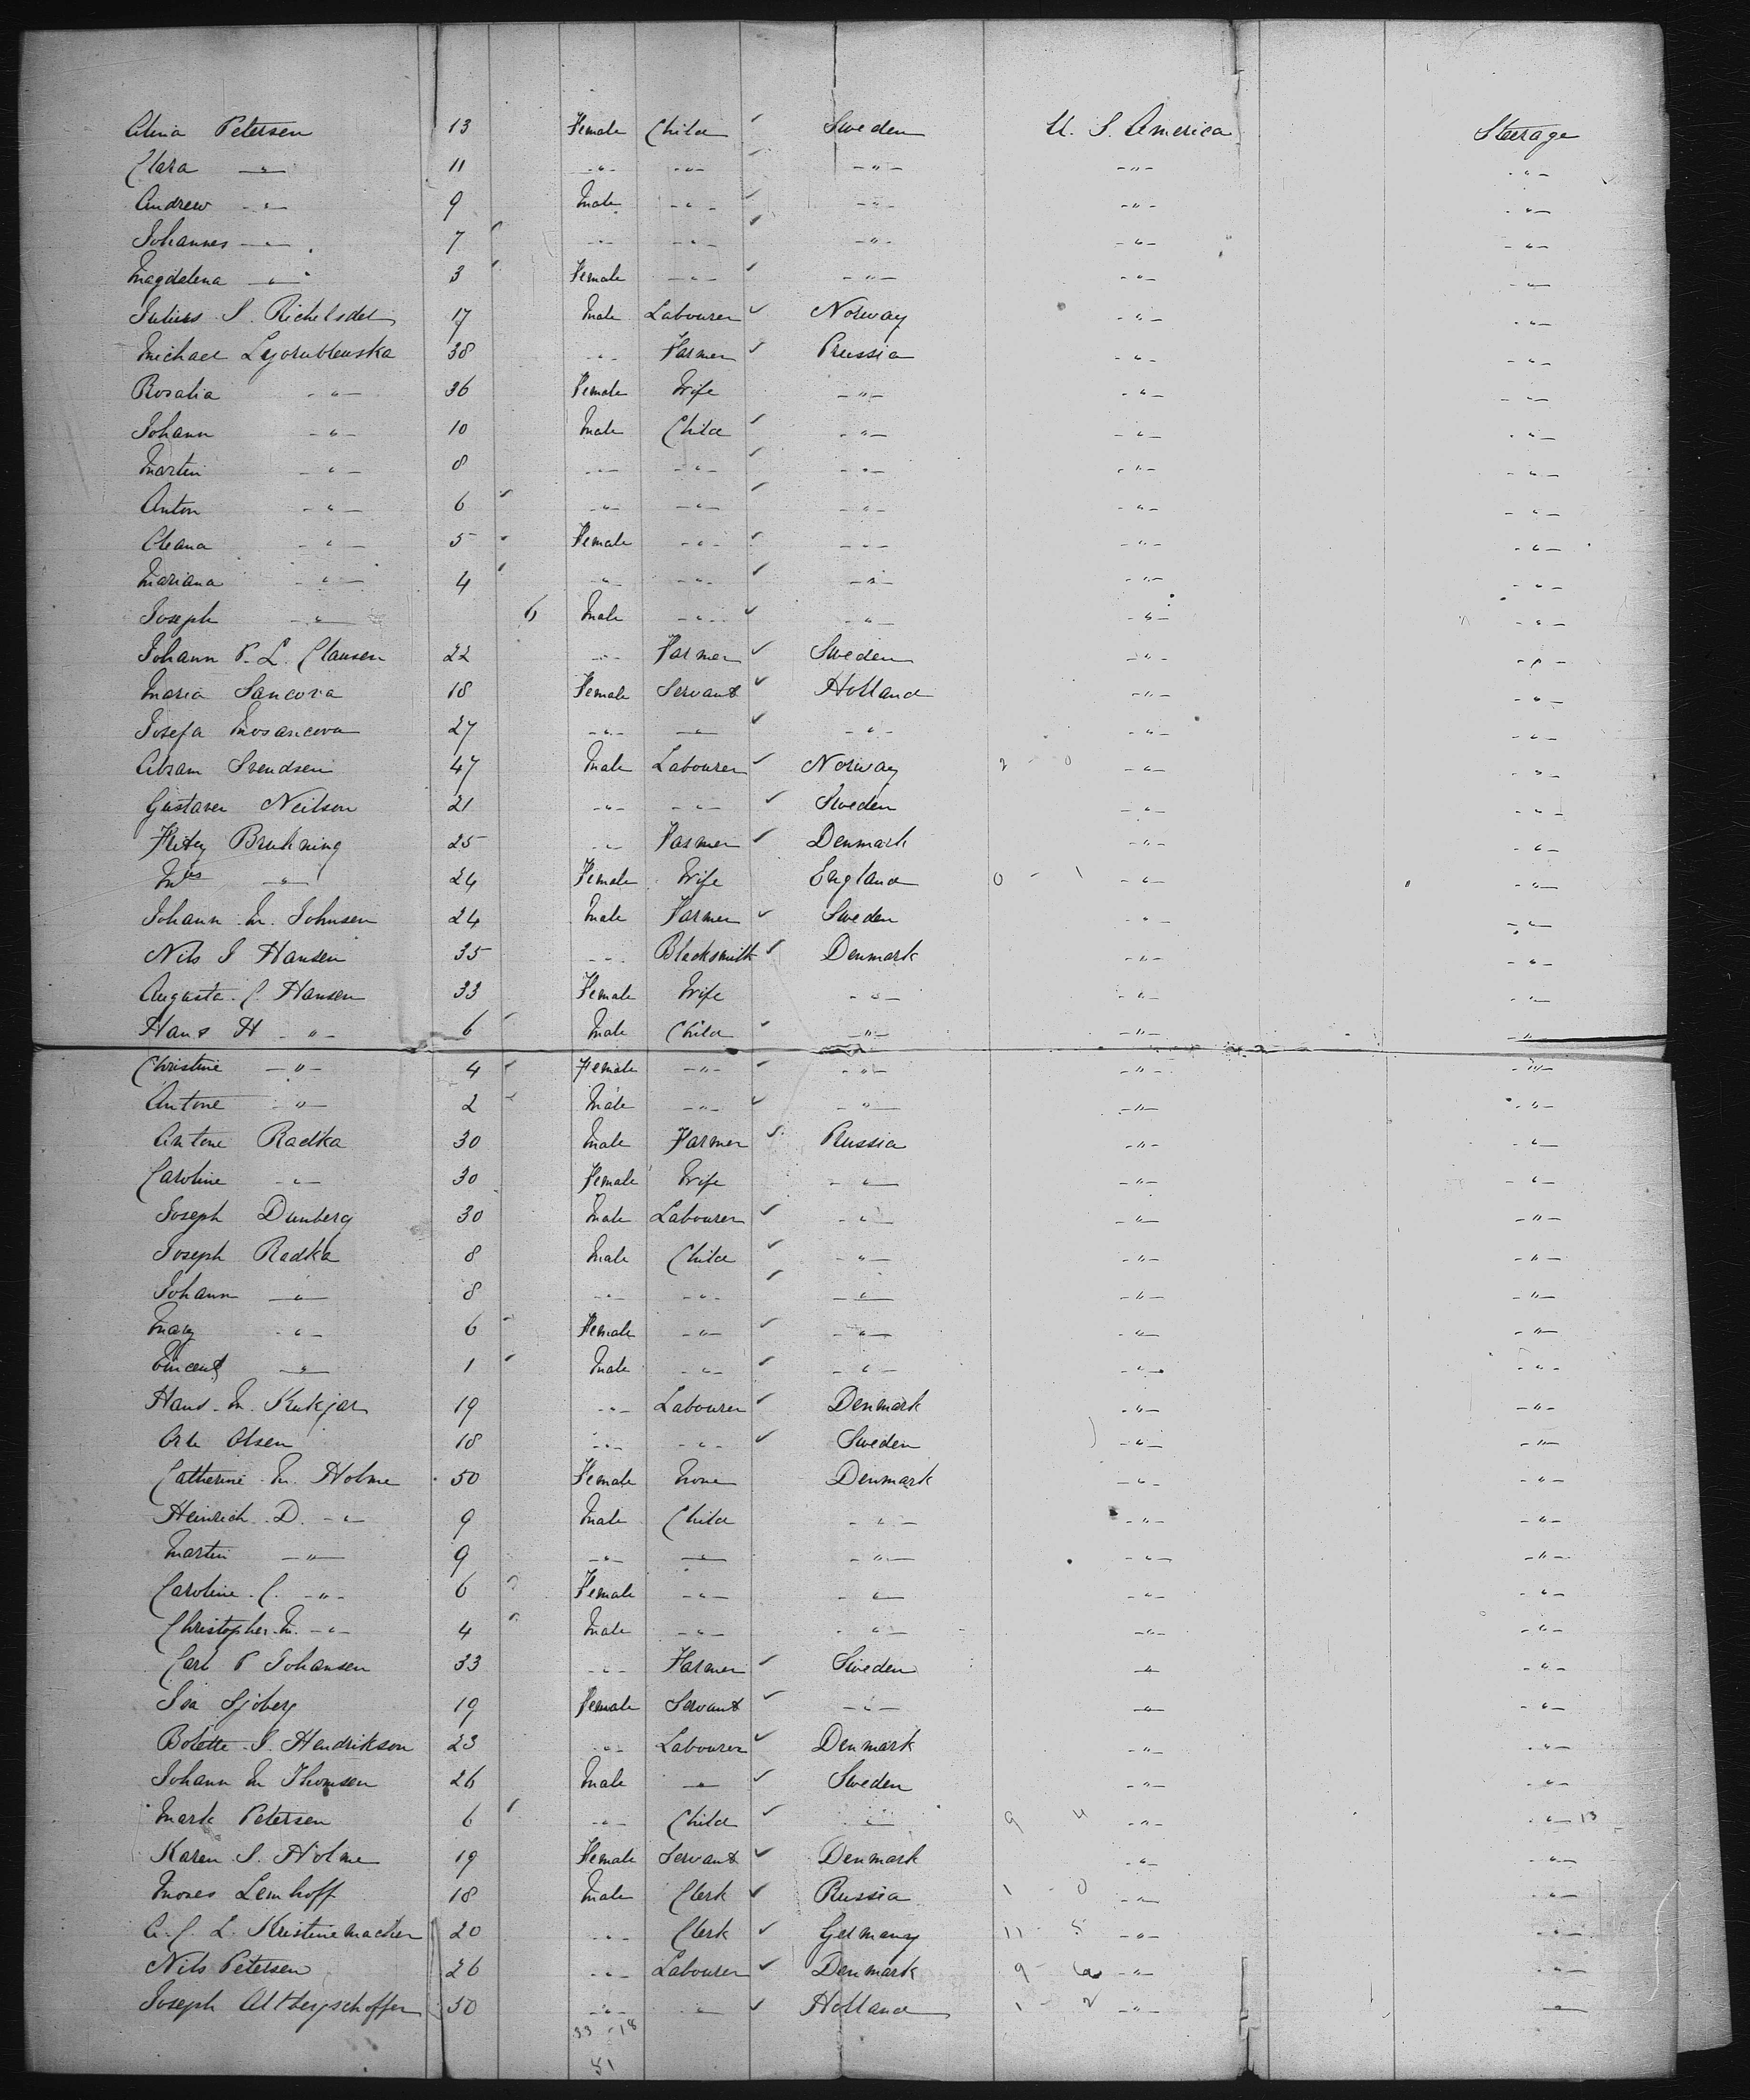 Alma Petersen 13 Female Child ✓ Sweden U. S. America Steerage
Clara -"- 11 -"- -"- ✓ -"- -"- -"-
Andrew -"- 9 Male -"- ✓ -"- -"- -"-
Johannes -"- 7 -"- -"- ✓ -"- -"- -"-
Magdalena -"- 3 Female -"- ✓ -"- -"- -"-
Julius S. 17 Male Labourer ✓ Norway -"- -"-
Michael 38 -"- Farmer ✓ Prussia -"- -"-
Rosalia -"- 36 Female Wife -"- -"- -"-
Johann -"- 10 Male Child ✓ -"- -"- -"-
Martin -"- 8 -"- -"- ✓ -"- -"- -"-
Anton -"- 6 -"- -"- ✓ -"- -"- -"-
-"- 5 Female -"- ✓ -"- -"- -"-
Mariana -"- 4 -"- -"- ✓ -"- -"- -"-
Joseph -"- 6 Male -"- ✓ -"- -"- -"-
Johann P. L. Clausen 22 -"- Farmer ✓ Sweden -"- -"-
Maria Sancora 18 Female Servant ✓ Holland -"- -"-
Josefa 27 -"- -"- ✓ -"- -"- -"-
Abram Svendsen 47 Male Labourer ✓ Norway 2 - 0 -"- -"-
Gustaver Neilson 21 -"- -"- ✓ Sweden -"- -"-
Brukning 25 -"- Farmer ✓ Denmark -"- -"-
Mrs -"- 24 Female Wife England 0 - 1 -"- -"-
Johann M. Johnsen 24 Male Farmer ✓ Sweden -"- -"-
Nils J Hansen 35 -"- Blacksmith ✓ Denmark -"- -"-
Augusta C. Hansen 33 Female Wife -"- -"- -"-
Hans H -"- 6 Male Child ✓ -"- -"- -"-
Christine -"- 4 Female -"- ✓ -"- -"- -"-
Antone -"- 2 Male -"- ✓ -"- -"- -"-
Antone Radka 30 Male Farmer ✓ Russia -"- -"-
Caroline -"- 30 Female Wife -"- -"- -"-
Joseph Dunberg 30 Male Labourer ✓ -"- -"- -"-
Joseph Radka 8 Male Child ✓ -"- -"- -"-
Johann -"- 8 -"- -"- ✓ -"- -"- -"-
Mary -"- 6 Female -"- ✓ -"- -"- -"-
Vincent -"- 1 Male -"- ✓ -"- -"- -"-
Hans M. Kukjar 19 -"- Labourer ✓ Denmark -"- -"-
Olsen 18 -"- -"- ✓ Sweden -"- -"-
Catherine M. Holme 50 Female None Denmark -"- -"-
Heinrich D. -"- 9 Male Child -"- -"- -"-
Martin -"- 9 -"- -"- -"- -"- -"-
Caroline C. -"- 6 Female -"- -"- -"- -"-
Christopher M. -"- 4 Male -"- -"- -"- -"-
Carl P Johansen 33 -"- Farmer ✓ Sweden -"- -"-
Sjoberg 19 Female Servant ✓ -"- -"- -"-
Bolette J. Hendrikson 23 -"- Labourer ✓ Denmark -"- -"-
Johann M Thomsen 26 Male -"- ✓ Sweden -"- -"-
Mark Petersen 6 -"- Child ✓ -"- 9 4 -"- -"- 13
Karen S. Holme 19 Female Servant ✓ Denmark -"- -"-
Moses Lemhoff 18 Male Clerk ✓ Russia 1 - 0 -"- -"-
A. C. L. Kristinemacher 20 -"- Clerk ✓ Germany 11 - 5 -"- -"-
Nils Petersen 26 -"- Labourer ✓ Denmark 9 - -"- -"-
Joseph Altbergschoffer 30 -"- -"- ✓ Holland 1 - 2 -"- -"-
33 - 18
51